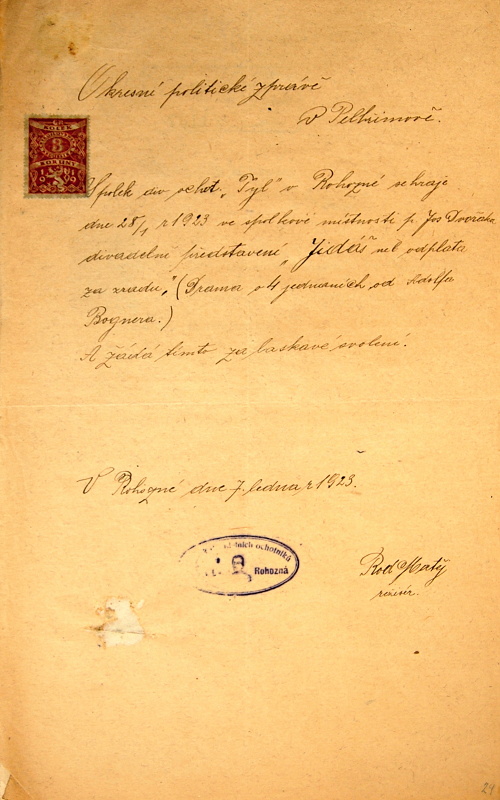 Okresné politické zprávě
v Pelhřimově.
KOLEK
8
KORUNY
Spolek div ochot „Tyl" v Rohozné sehraje
dne 28/1 r 1923 ve spolkové místnosti p. Jos Dvořáka
divadelné představení „Jidáš neb odplata
za zradu," (Drama o 4 jednáních od Adolfa
Bognera.)
A žádá tímto za laskavé svolení.
V Rohozné dne 7. ledna r 1923.
divadelních ochotníků
Rohozná
Rud Matý
režisér.